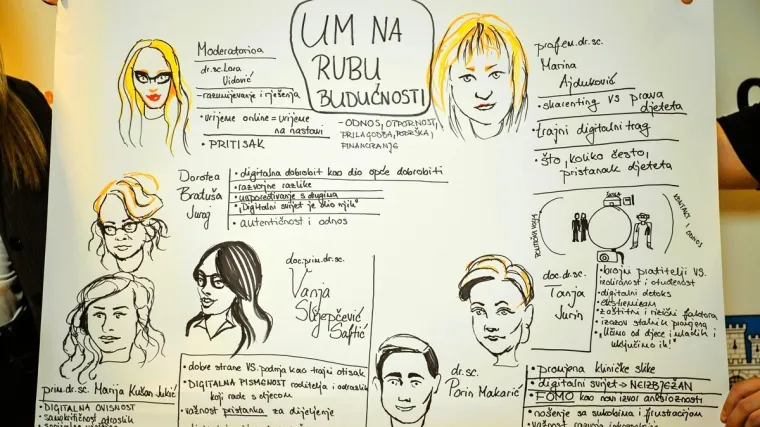 UM NA
RUBU
BUDUĆNOSTI
- ODNOS, OTPORNOST,
PRILAGODBA, PODRŠKA,
FINANCIRANJE
Moderatorica
dr.sc. Lora
Vidović
- razumijevanje i rješenja
• vrijeme online = vrijeme
na nastavi
• PRITISAK
prof.em.dr.sc.
Marina
Ajduković
- sharenting VS prava
djeteta
- trajni digitalni trag
- što, koliko često,
pristanak djeteta
Dorotea
Bratuša
Juraj
• digitalna dobrobit kao dio opće dobrobiti
• razvojne razlike
• uspoređivanje s drugima
• "Digitalni svijet je dio njih"
• autentičnost i odnos
ŠKOLA
KONTAKT I ODNOS
doc.prim.dr.sc.
Vanja
Slijepčević
Saftić
doc.dr.sc.
Tanja
Jurin
• broju pratitelji VS.
izoliranost i otuđenost
• digitalni detoks
• ekstremizam
• zaštitni i rizični faktora
• izazov stalnih promjena
• "Učimo od djece i mladih i
uključimo ih!"
prim.dr.sc. Marija Kušan Jukić
• DIGITALNA OVISNOST
• dobre strane VS. podnja kao trajni otisak
• DIGITALNA PISMENOST roditelja i odraslih
koji rade s djecom
• važnost pristanka za dijeljenje
dr.sc.
Porin Makarić
• promjena kliničke slike
• digitalni svijet → NEIZBJEŽAN
• FOMO kao novi izvor anksioznosti
• nošenje sa sukobima i frustracijom